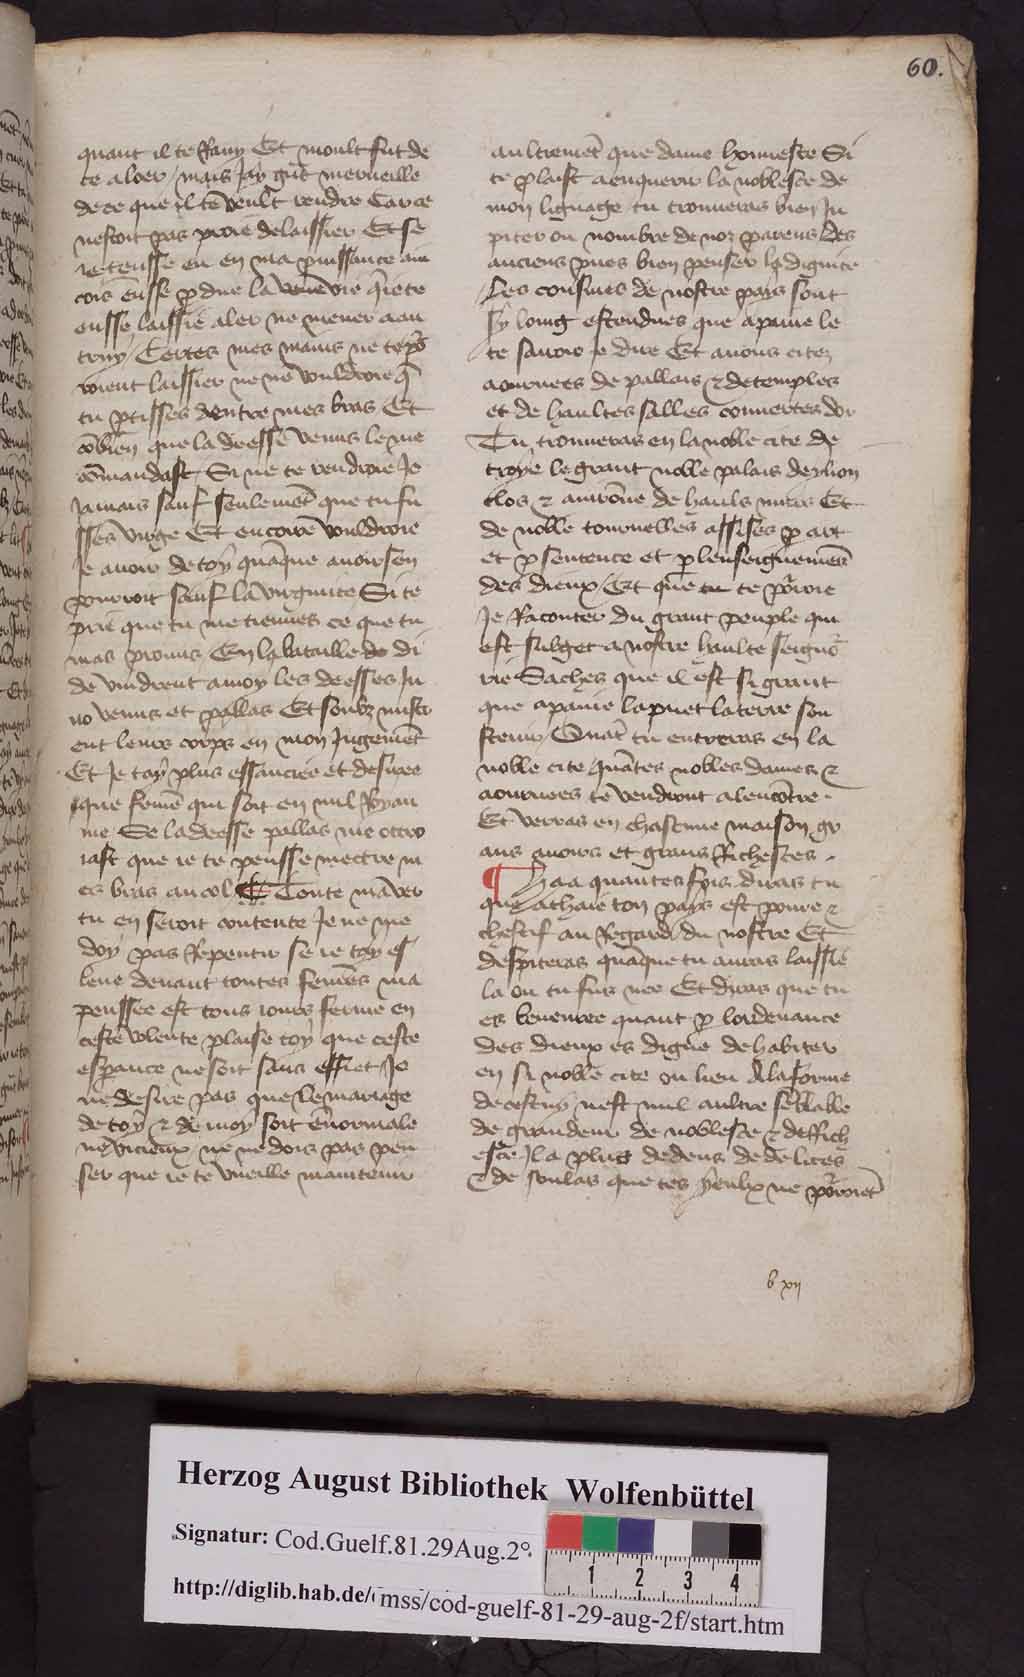 60.
quant il te Rauy Et moult fut de
te aloer / mais Jay grāt merueille
de ce que il te veult rendre Car ce
nestoit pas proie delaissier Et se
ie teusse eu en ma puissance ain
cois eusse pdue la vie q̄ ie te
eusse laissie aler ne mener a au
truy / Certes mes mains ne te por
roient laissier ne ne vouldroie q̄
tu ptisses dentre mes bras Et
cōbien que la deesse venus le me
cōmandast Si ne te rendroie Je
Jamais sauf seulemēt que tu fu
sses virge Et encore vouldroie
Je auoir de toy quāque auoir sen
pourroit sauf la virginite Si te
prie que tu me tiennes ce que tu
mas promis En la bataille de di
de vindrent a moy les deesses Ju
no venus et pallas Et soubz mistr
ent leurs corps en mon Jugemēt
Et Je tay plus essauciee et desiree
que femē qui soit en nul Royau
me Se la deesse pallas me ottro
iast que ie te peusse mectre m
es bras au col Toute ma ver
tu en seroit contente Je ne me
doy pas Repentir se ie tay es
leue deuant toutes femēs ma
pensee est tous iours ferme en
ceste volente plaise toy que ceste
espance ne soit sans effiet Je
ne desire pas que le mariage
de toy & de moy soit ēnormale
ne vicieux ne ne dois pas pen
ser que ie te vueille maintenir
aultremēt que dame honneste Si
te plaist a enquerir la noblesce de
mon lignage tu trouueras bien Ju
piter ou nombre de noz parens Des
anciens pues bien penser la dignite
Les confines de nostre pays sont
sy loing estendues que apaine le
te sauroie dire Et auons citez
aournees de pallais & de temples
et de haultes salles couuertes dor
Tu trouueras en la noble cite de
troye le grant noble palais de ylion
clos & auirōne de haulx murs Et
de noble tournelles assises p art
et p sentence et p lenseignemēt
des dieux / Et que te porroie
Je Raconter du grant peuple qui
est subget a nostre haulte seigno
rie Saches que il est si grant
que apaine la puet la terre sou
stenir / Quāt tu entreras en la
noble cite quātes nobles dames &
aournees te vendront alencōtre .
Et verras en chascune maison gr
ans auoirs et grans Richesces .
¶ haa quantes fois diras tu
que achaie ton pays est poure &
chestif au Regard du nostre Et
despiteras quāque tu auras laissie
la ou tu fus nee Et diras que tu
es beneuree quant p lordenance
des dieux es digne de habiter
en si noble cite ou lieu A la forme
de cestuy nest nul aultre sēblable
de grandeur de noblesce & de Rich
esce Il a plus dedens de delices
& de soulas que tes yeulx ne porroiēt
b xii
Herzog August Bibliothek Wolfenbüttel
Signatur: Cod.Guelf.81.29Aug.2°.
1 2 3 4
http://diglib.hab.de/mss/cod-guelf-81-29-aug-2f/start.htm